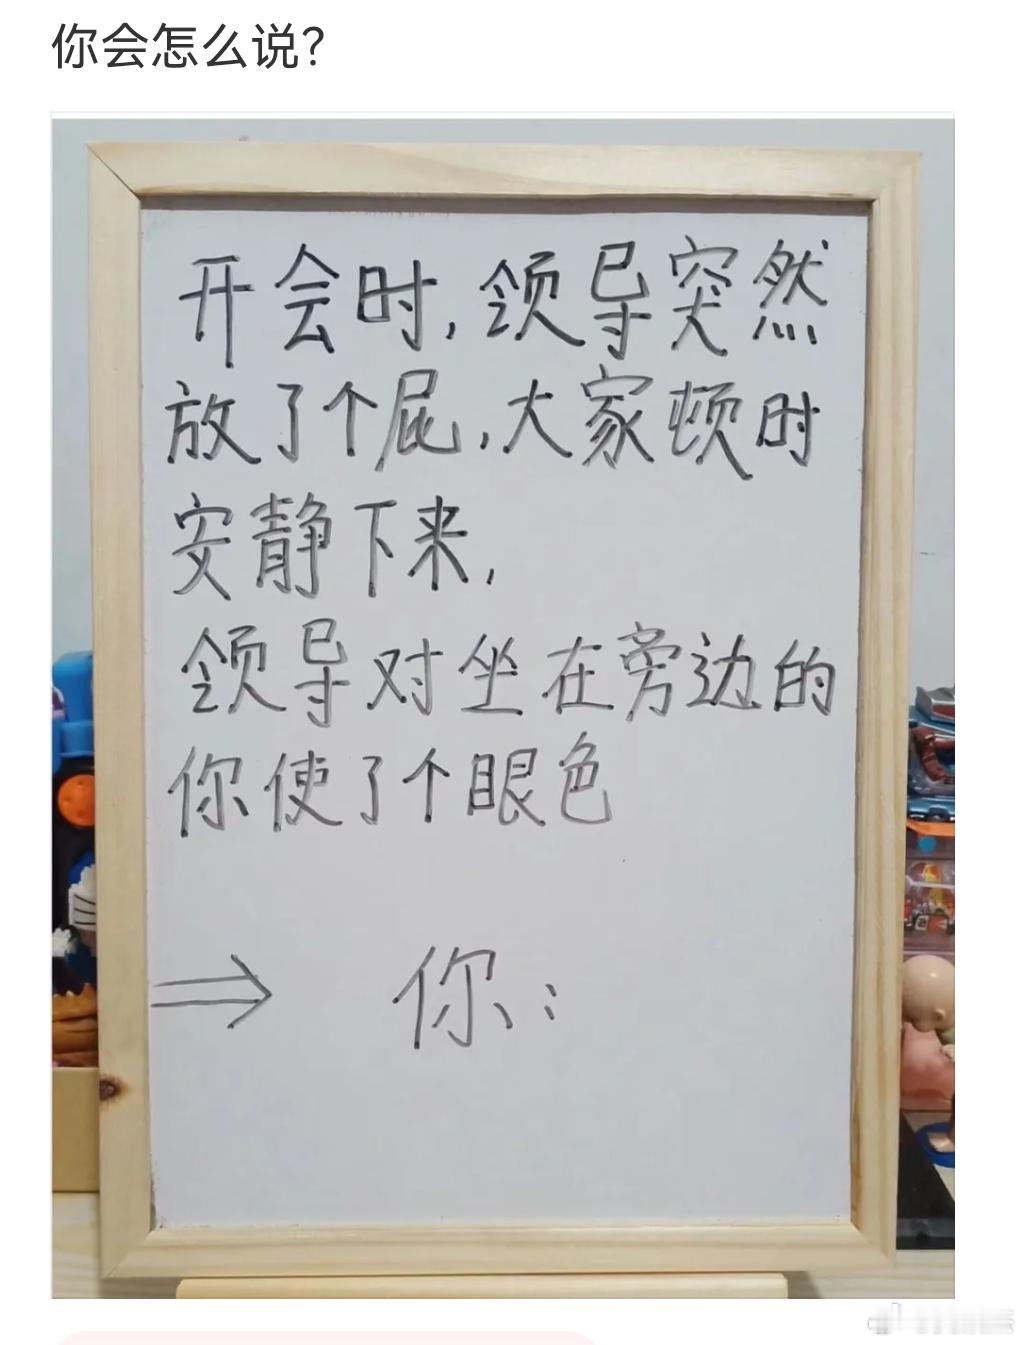 你会怎么说?
开会时,领导突然
放了个屁,大家顿时
安静下来,
领导对坐在旁边的
你使了个眼色
⇒ 你: